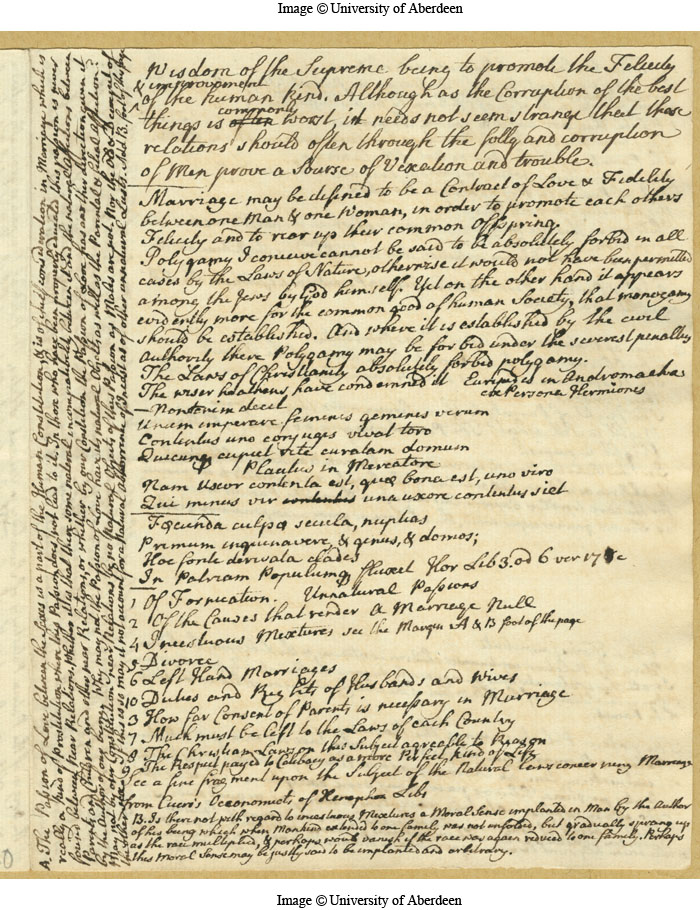 Image © University of Aberdeen
Wisdom of the Supreme being to promote the Felicity
& improvement
of the human kind. Although as the Corruption of the best
commonly
things is often worst, it needs not seem strange that these
relations should often through the folly and corruption
of Men prove a Sourse of Vexation and trouble.
Marriage may be defined to be a Contract of Love & Fidelity
between one Man & one Woman, in order to promote each others
Felicity and to rear up their common Offspring.
Polygamy I conceive cannot be said to be absolutely forbid in all
cases by the Laws of Nature, otherwise it would not have been permitted
among the Jews by God himself. Yet on the other hand it appears
evidently more for the common good of human Society, that monogamy
should be established. And where it is established by the civil
authority there Polygamy may be forbid under the severest penalties
The Laws of Christianity absolutely forbid polygamy.
The wiser heathens, have condemned it Euripides in Andromacha
ex Persona Hermiones
Non enim decet
Unum imperare feminis geminis virum
Contentus uno conjuges vivat toro
Quicunq cupiet rite curatam domum
Plautus in Mercatore
Nam Uxor contenta est, quæ bona est, uno viro
Qui minus vir contentus una uxore contentus siet
Fœcunda culpæ secula, nuptias
Primum inquinavere, & genus, & domos;
Hoc fonte derivata clades
In Patriam Populumq fluxit Hor Lib 3. od 6 ver 17 &c
1 Of Fornication. Unnatural Passions
2 Of the Causes that render a Marriage Null
4 Incestuous Mixtures see the Margin A & B foot of the page
5 Divorce
6 Left Hand Marriages
10 Duties and Rights of Husbands and Wives
3 How far Consent of Parents is necessary in Marriage
7. Much must be left to the Laws of each Country
8 The Christian Laws on this Subject agreable to Reason
9 The Respect payed to Celibacy as a more Perfect kind of Life
See a fine fragment upon the Subject of the Natural Laws concerning Marriage
from Cicero's Oeconomics of Xenophon Lib 1
B. Is there not with regard to incestuous Mixtures a Moral Sense implanted in Man by the Author
of his being which when Mankind extended to one family, was not unfolded, but gradually sprang up
as the race multiplied, & perhaps would vanish if the race was again reduced to one family. Perhaps
this Moral Sense may be justly said to be implanted and arbitrary.
A. The Passion of Love between the Sexes is a part of the Human Constitution & is of chief consideration in Marriage which is
really a kind of Prostitution where this Passion does not lead to it. In those who have been
found between near Relations, Whether is it that there is some natural incompatibility between
Parents and Children and other near Relations, or whether by our Constitution the Passion of Love
by the Author of our being
Image © University of Aberdeen